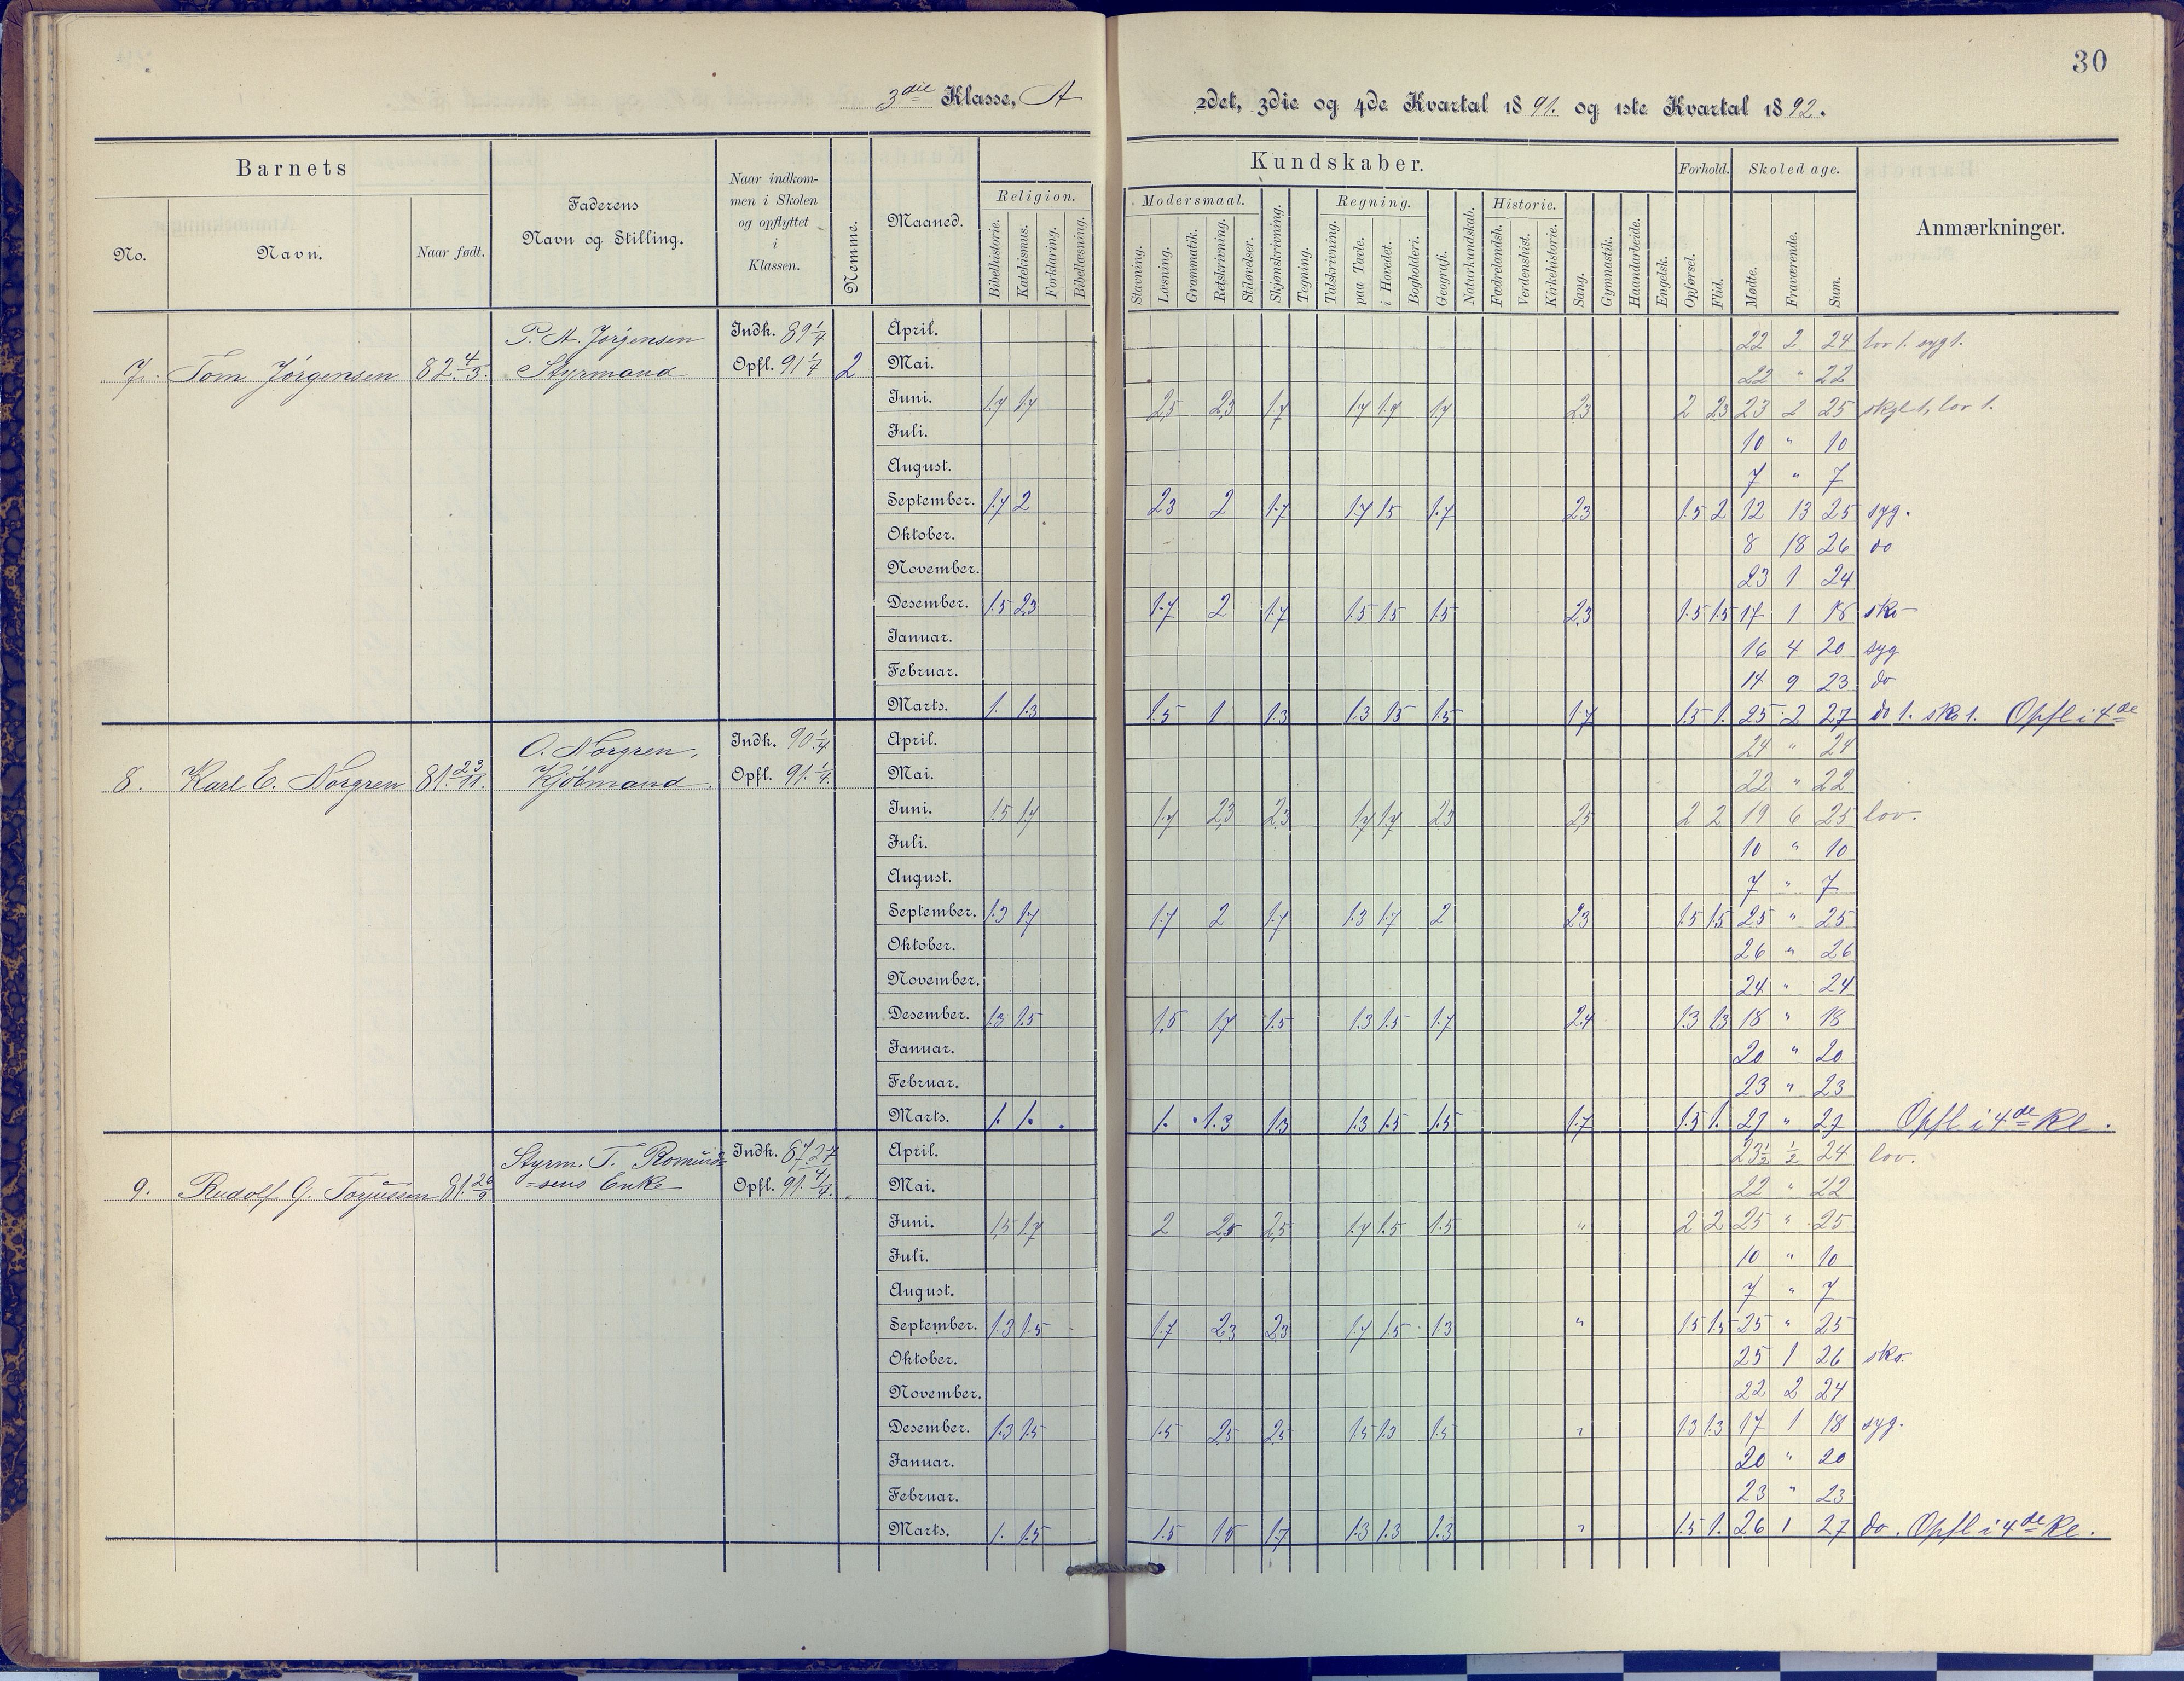 30
3die Klasse, A
2det, 3die og 4de Kvartal 1891. og 1ste Kvartal 1892.
Barnets
Faderens
Navn og Stilling.
Naar indkom-
men i Skolen
og opflyttet
i
Klassen.
Nemme.
Maaned.
Kundskaber.
Forhold.
Skoledage.
Anmærkninger.
No.
Navn.
Naar født.
Religion.
Modersmaal.
Regning.
Historie.
Bibelhistorie. Katekismus. Forklaring. Bibellæsning. Stavning. Læsning. Grammatik. Retskrivning. Stiløvelser. Skjønskrivning. Tegning. Talskrivning. paa Tavle. i Hovedet. Bogholderi. Geografi. Naturkundskab. Fædrelandsh. Verdenshist. Kirkehistorie. Sang. Gymnastik. Haandarbeide. Engelsk. Opførsel. Flid. Mødte. Fraværende. Sum.
7. Tom Jörgensen 82 4/3. P. A. Jörgensen Styrmand Indk. 89 1/4 Opfl. 91 1/4 2
April. 22 2 24 lov 1. syg 1.
Mai. 22 " 22
Juni. 1.7 1.7 2,5 2,3 1.7 1.7 1.7 1.7 2,3 2 2,3 23 2 25 1, lov 1.
Juli. 10 " 10
August. 7 " 7
September. 1.7 2 2,3 2 1.7 1.7 1.5 1.7 2,3 1.5 2 12 13 25 syg.
Oktober. 8 18 26 do
November. 23 1 24
Desember. 1.5 2,3 1.7 2 1.7 1.5 1.5 1.5 2,3 1.5 1.5 17 1 18 sko
Januar. 16 4 20 syg
Februar. 14 9 23 do
Marts. 1. 1.3 1.5 1 1.3 1.3 1.5 1.5 1.7 1.5 1. 25 2 27 do 1. sko 1. Opfl i 4de
8. Karl E. Norgren 81. 23/11. O. Norgren, Kjöbmand. Indk. 90 1/4 Opfl. 91. 1/4.
April. 24 " 24
Mai. 22 " 22
Juni. 1.5 1.7 1.7 2,3 2,3 1.7 1.7 2,3 2,5 2 2 19 6 25 lov.
Juli. 10 " 10
August. 7 " 7
September. 1.3 1.7 1.7 2 1.7 1.3 1.7 2 2,3 1.5 1.5 25 " 25
Oktober. 26 " 26
November. 24 " 24
Desember. 1.3 1.5 1.5 1.7 1.5 1.3 1.5 1.7 2.4 1.3 1.3 18 " 18
Januar. 20 " 20
Februar. 23 " 23
Marts. 1. 1. 1. 1.3 1.3 1.3 1.5 1.5 1.7 1.5 1. 27 " 27 Opfl i 4de Kl.
9. Rudolf G. Torjussen 81. 26/9 Styrm. T. Romund=sens Enke Indk. 87. 27/4 Opfl. 91. 1/4.
April. 23 1/2 1/2 24 lov.
Mai. 22 " 22
Juni. 1,5 1.7 2 2,5 2,5 1.7 1.5 1.5 " 2 2 25 " 25
Juli. 10 " 10
August. 7 " 7
September. 1.3 1.5 1.7 2,3 2,3 1.7 1.5 1.3 " 1.5 1.5 25 " 25
Oktober. 25 1 26 sko.
November. 22 2 24
Desember. 1.3 1.5 1.5 2,5 2,5 1.5 1.3 1.5 " 1.3 1.3 17 1 18 syg.
Januar. 20 " 20
Februar. 23 " 23
Marts. 1. 1.5 1.5 1.5 1.7 1.3 1.3 1.3 " 1.5 1. 26 1 27 do. Opfl i 4de Kl.